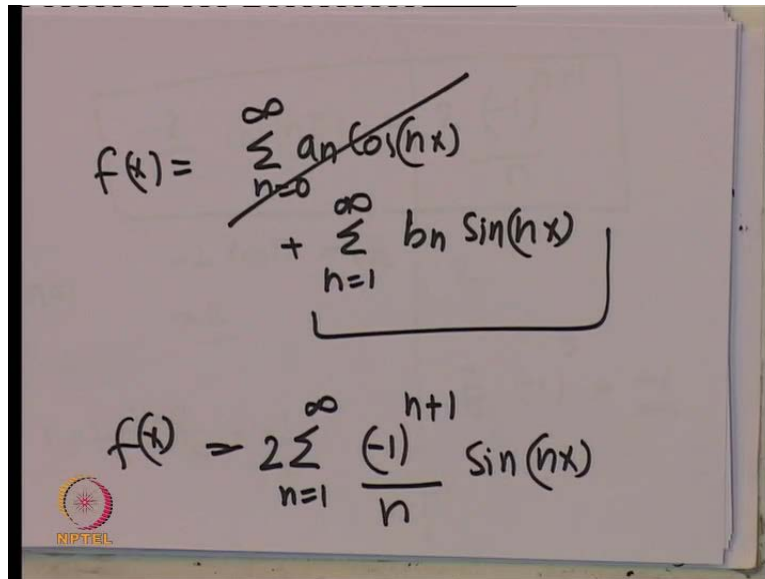 f(x) = ∞∑n=0 an Cos(nx)
+ ∞∑n=1 bn Sin(nx)
f(x) = 2 ∞∑n=1 (-1)^n+1 / n Sin(nx)
NPTEL